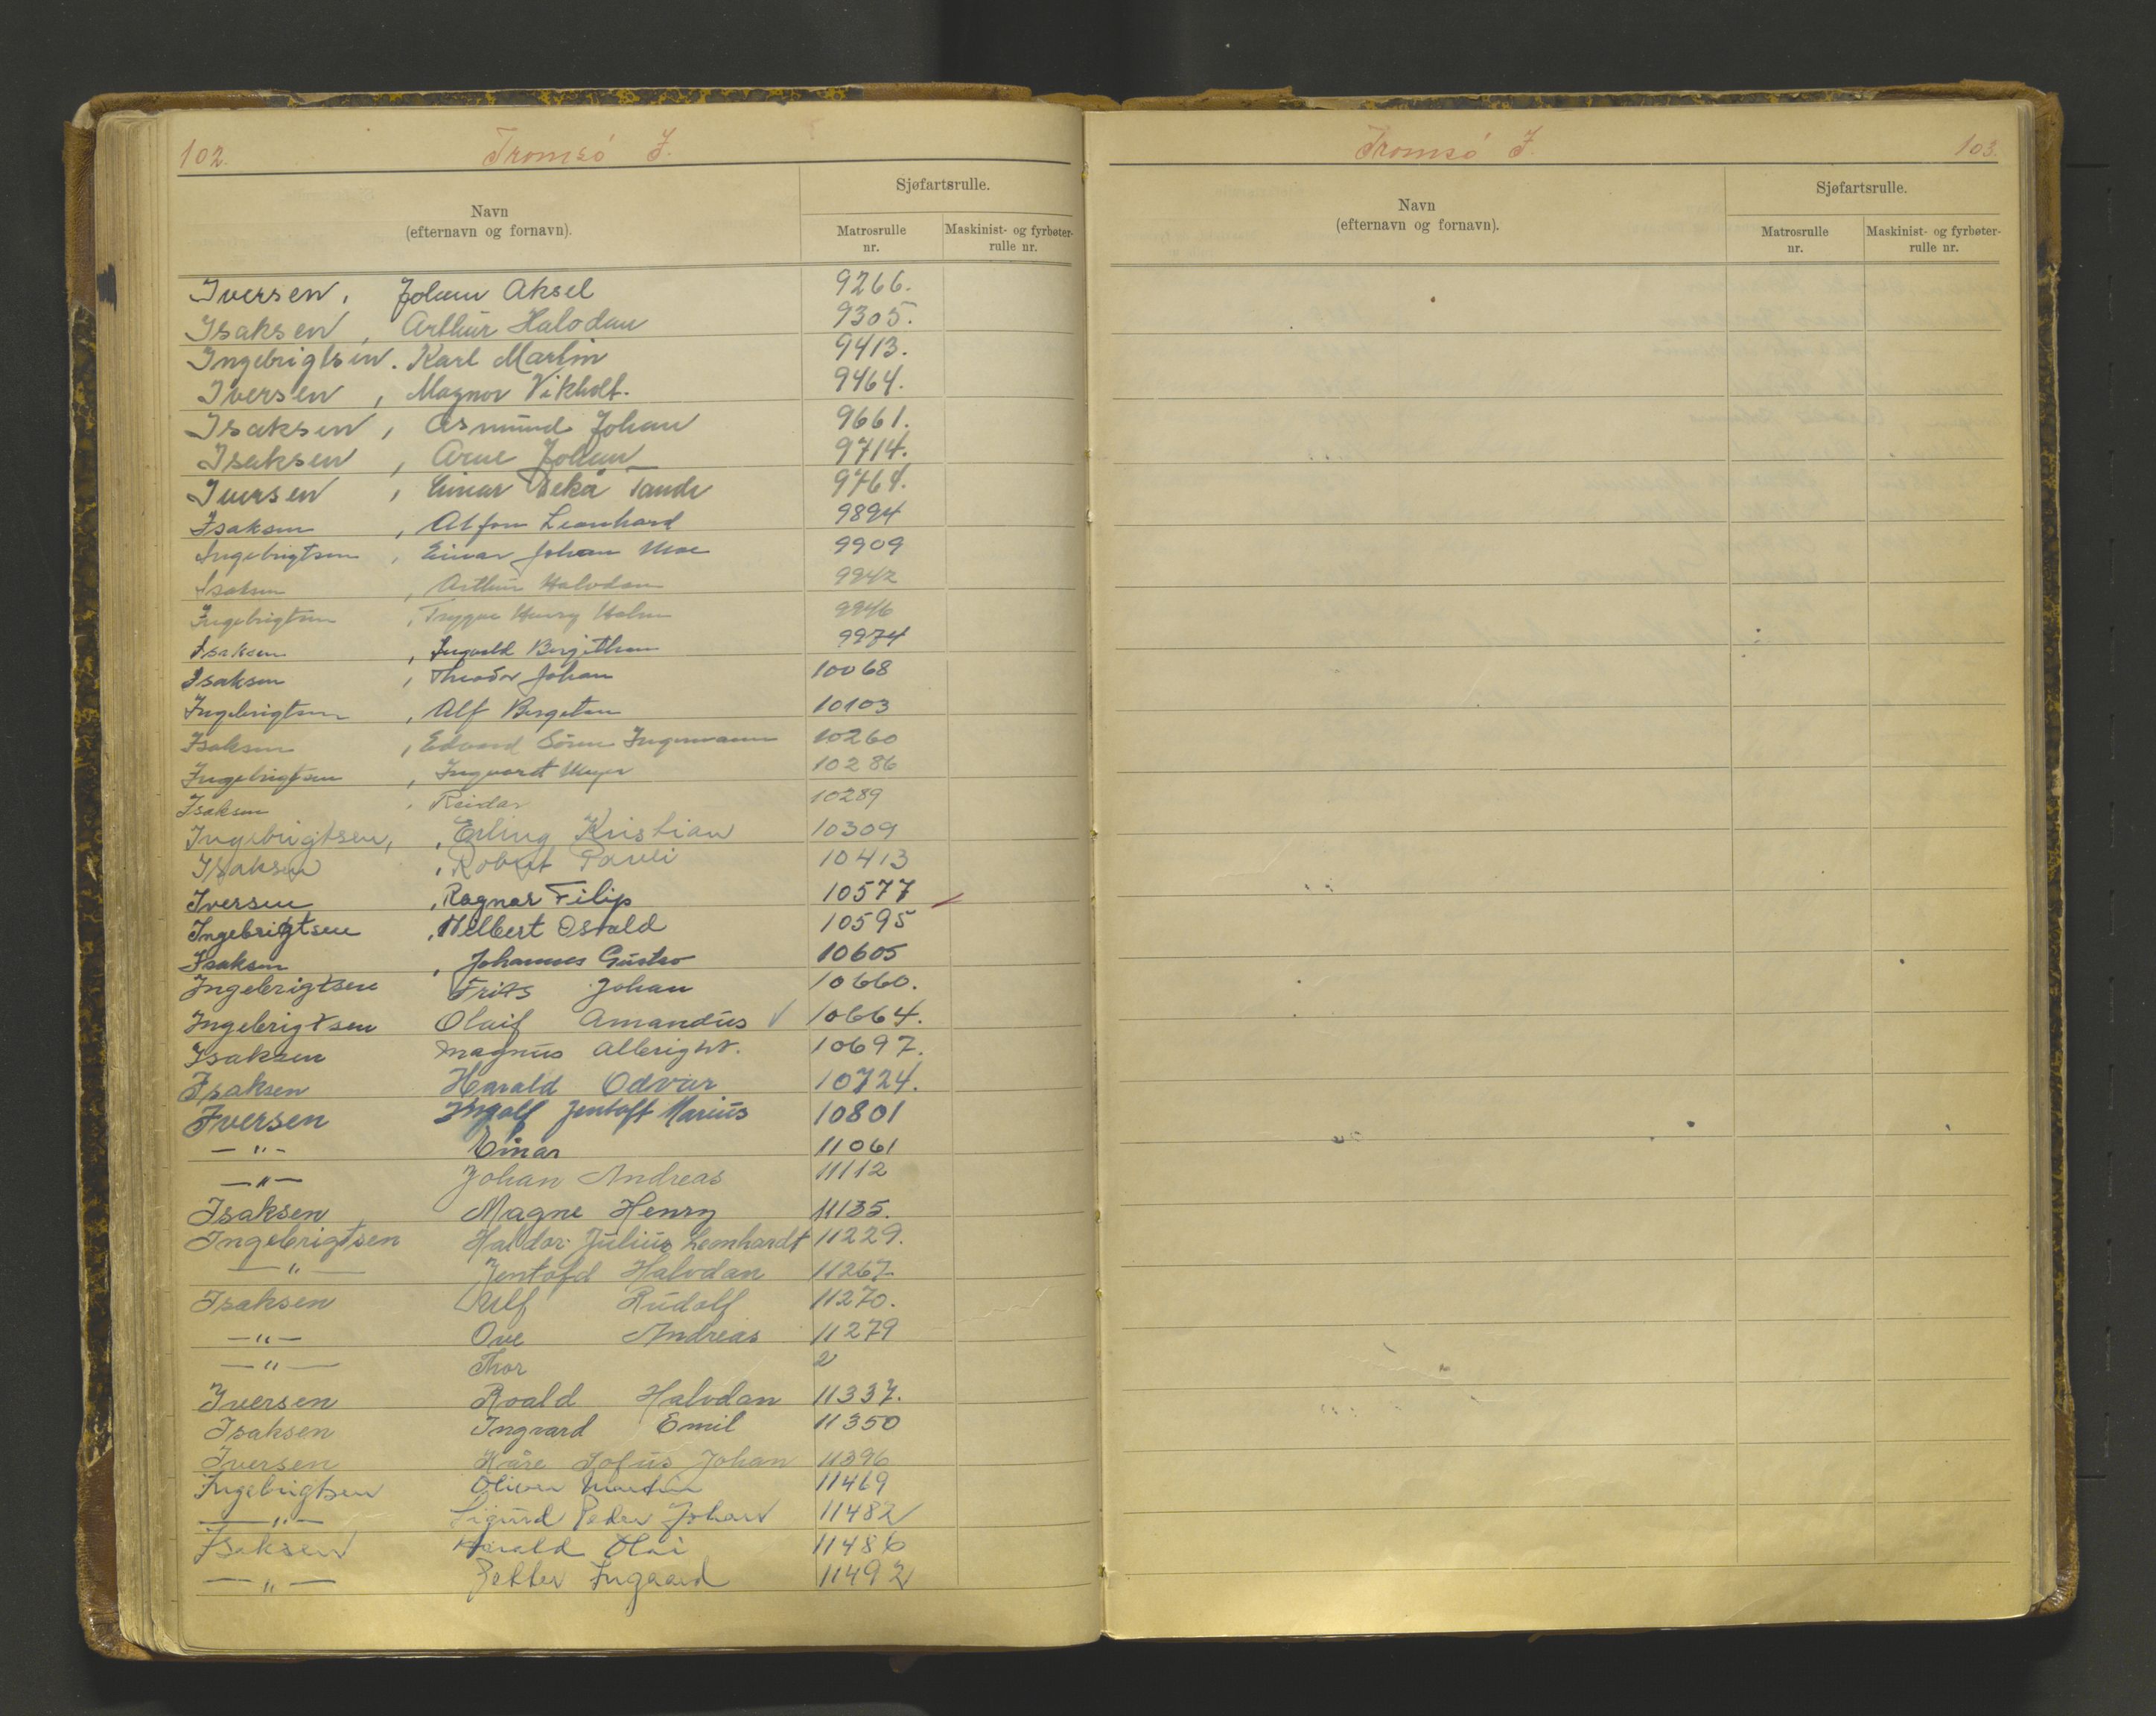 102. Tromsø I.
Sjøfartsrulle.
Navn
(efternavn og fornavn).
Matrosrulle nr.
Maskinist- og fyrbøter-rulle nr.
Iversen, Johan Aksel 9266.
Isaksen, Arthur Halvdan 9305.
Ingebrigtsen. Karl Martin 9413.
Iversen, Magnor Vikholt. 9464.
Isaksen, Asmund Johan 9661.
Isaksen, Arne Johan 9714.
Iversen, Einar Tande 9764.
Isaksen, Alfon Leonhard 9894
Ingebrigtsen, Einar Johan Moe 9909
Isaksen, Arthur Halvdan 9942
Ingebrigtsen, Trygve Henry Holm 9946
Isaksen, Ingvald Bergithon 9974
Isaksen, Theodor Johan 10068
Ingebrigtsen, Alf Bergeton 10103
Isaksen, Edvard Sören Ingemann 10260
Ingebrigtsen, Ingvart Meyer 10286
Isaksen, Reidar 10289
Ingebrigtsen, Erling Kristian 10309
Isaksen, Robert Pauli 10413
Iversen, Ragnar Filip 10577
Ingebrigtsen, Helbert Osvald 10595
Isaksen, Johannes Gustav 10605
Ingebrigtsen Frits Johan 10660.
Ingebrigtsen Olaif Amandus √ 10664.
Isaksen Magnus Albright. 10697.
Isaksen Harald Odvar 10724.
Iversen Ingolf Jentoft Marius 10801
—"— Einar 11061
—"— Johan Andreas 11112
Isaksen Magne Henry 11135.
Ingebrigtsen Haldor Julius Leonhardt 11229.
—"— Jentofd Halvdan 11267
Isaksen Ulf Rudolf 11270.
—"— Ove Andreas 11279
—"— Thor 2
Iversen Roald Halvdan 11337.
Isaksen Ingvard Emil 11350
Iversen Kåre Johan 11396
Ingebrigtsen Oliver Martin 11469
—"— Sigurd Peder Johan 11482
Isaksen Harald Olai 11486
—"— Petter Ingaard 11492
Tromsø I. 103.
Sjøfartsrulle.
Navn
(efternavn og fornavn).
Matrosrulle nr.
Maskinist- og fyrbøter-rulle nr.